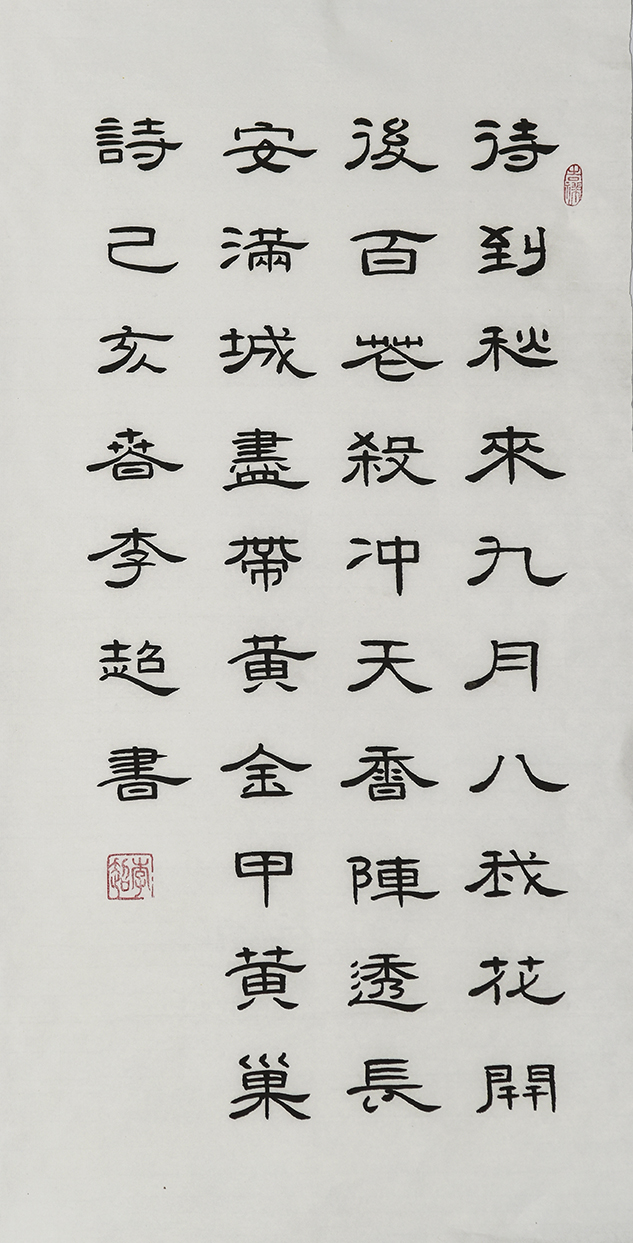 吉祥
待到秋來九月八我花開
後百花殺冲天香陣透長
安滿城盡帶黃金甲黃巢
詩己亥春李超書
李超